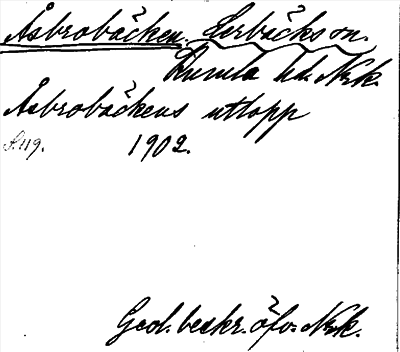 Åsbrobäcken. Lerbäcks sn.
Kumla hd. Nrk.
Åsbrobäckens utlopp
S. 119. 1902.
Geol. beskr. öfv. Nrk.